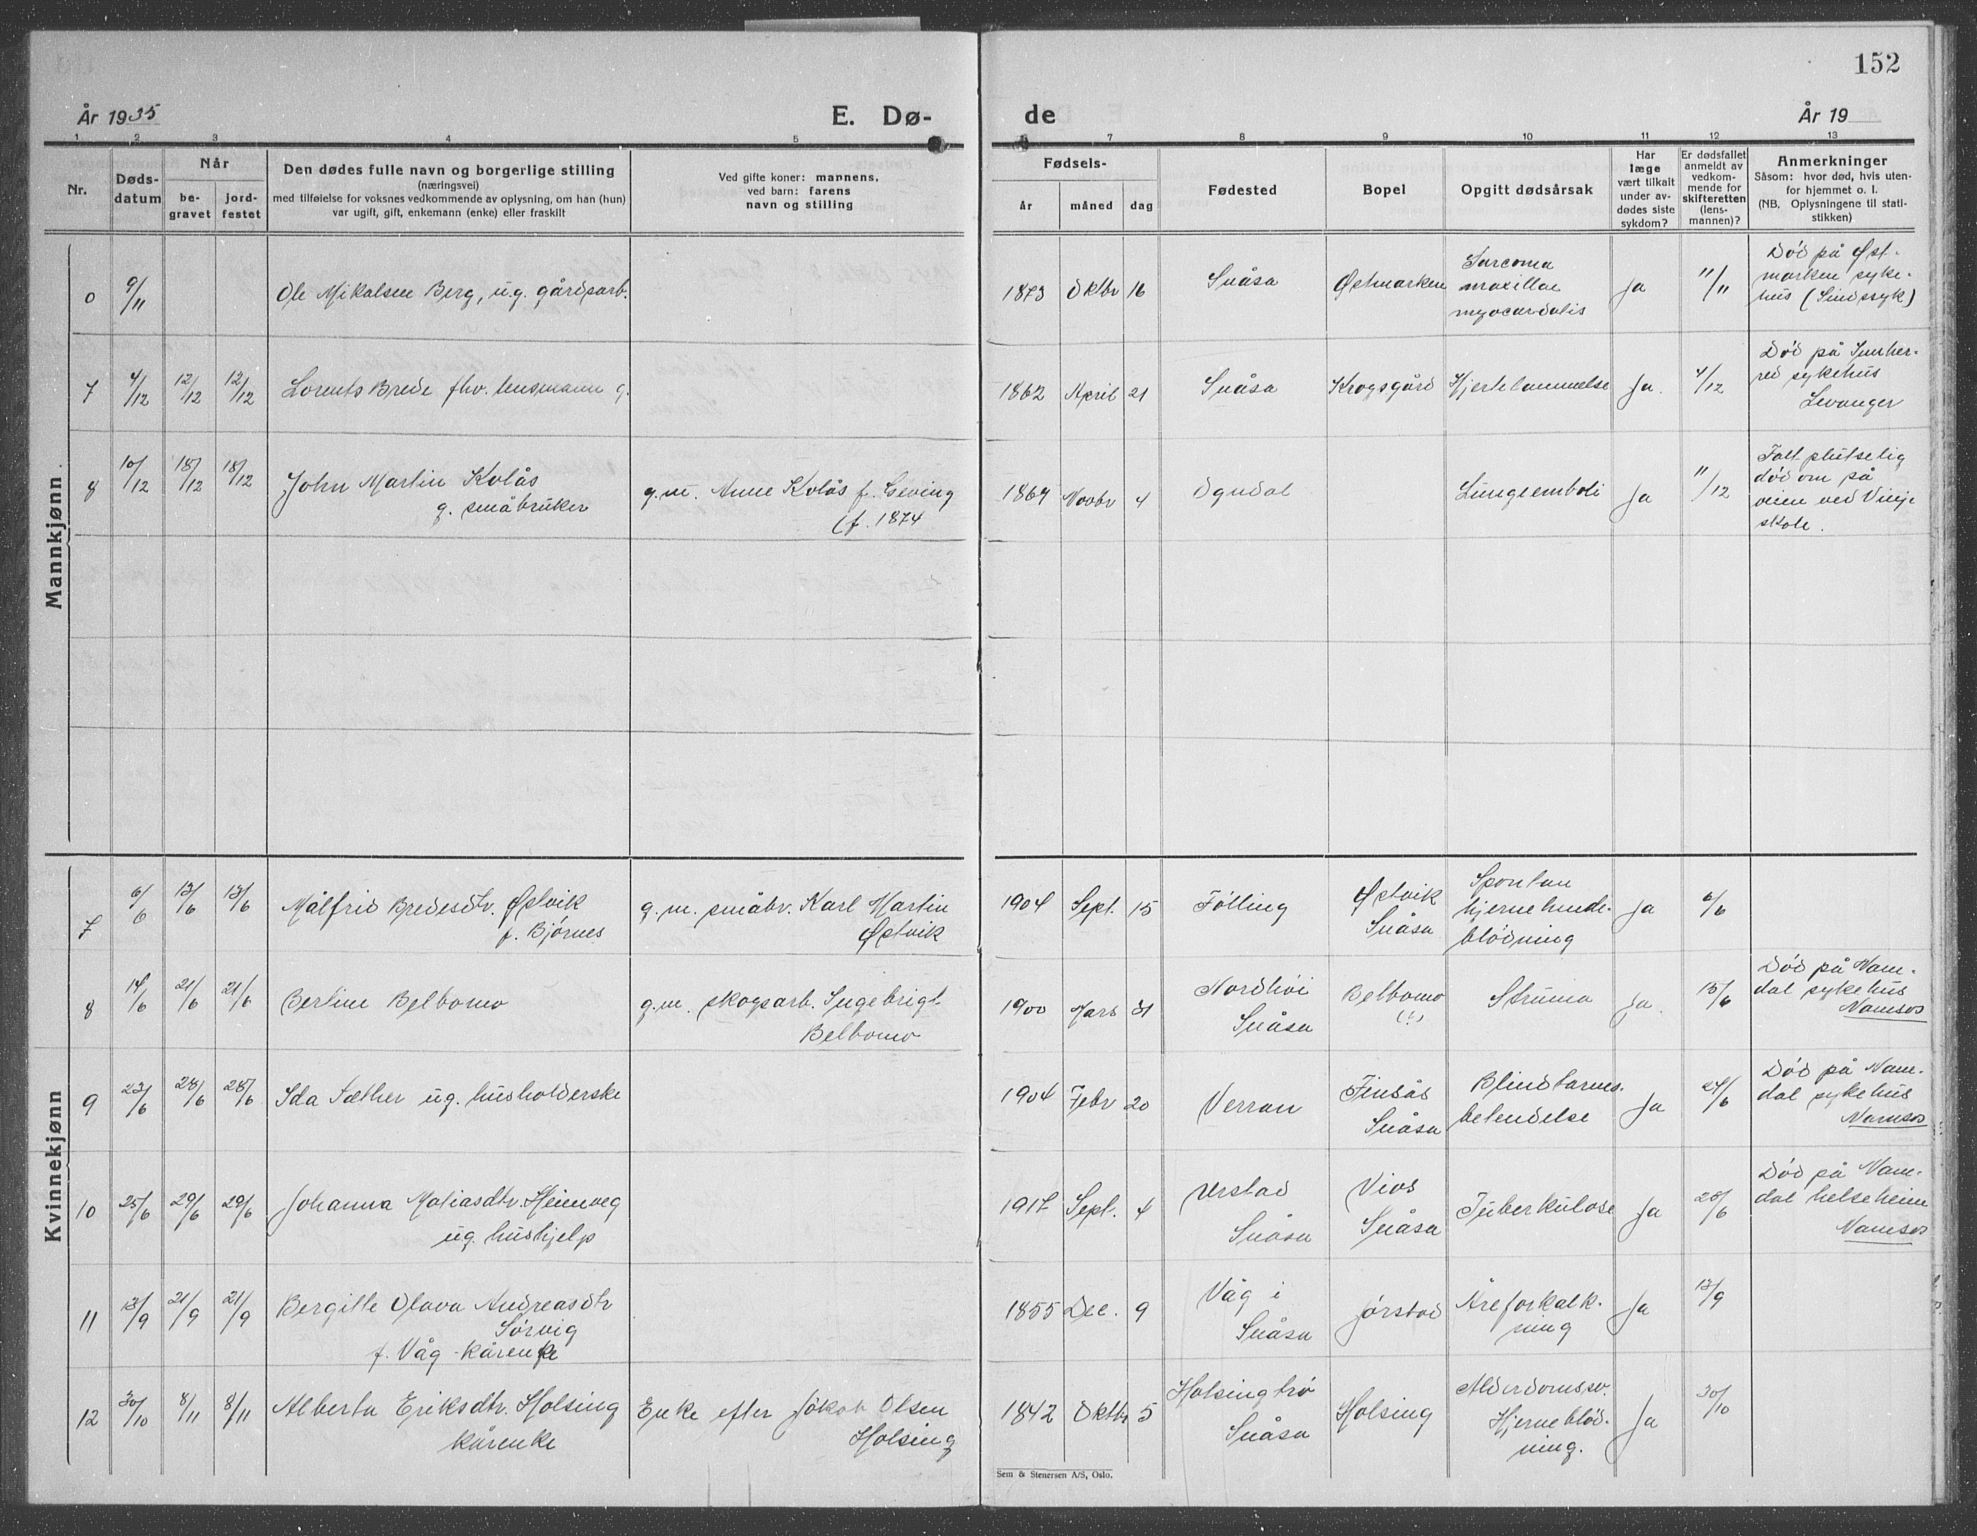 152
År 1935
E. Dø-
de
År 19
1 2 3 4 5 6 7 8 9 10 11 12 13
Nr.
Døds-
datum
Når
be-
gravet
jord-
festet
Den dødes fulle navn og borgerlige stilling
(næringsvei)
med tilføielse for voksnes vedkommende av oplysning, om han (hun)
var ugift, gift, enkemann (enke) eller fraskilt
Ved gifte koner: mannens,
ved barn: farens
navn og stilling
Fødsels-
år måned dag
Fødested
Bopel
Opgitt dødsårsak
Har
læge
vært tilkalt
under av-
dødes siste
sykdom?
Er dødsfallet
anmeldt av
vedkom-
mende for
skifteretten
(lens-
mannen)?
Anmerkninger
Såsom: hvor død, hvis uten-
for hjemmet o. l.
(NB. Oplysningene til stati-
stikken)
Mannkjønn.
0 9/11 Ole Mikalsen Berg, ug. gårdsarb. 1873 Oktbr 16 Snåsa Østmarken Sarcoma
maxillae
myocardalis
Ja 11/11 Død på Øst-
marken syke-
hus (Sindssyk)
7 4/12 12/12 12/12 Lorents Brede fhv. lensmann g. 1862 April 21 Snåsa Krogsgård Hjertelammelse Ja. 4/12 Død på Innher-
red sykehus
Levanger
8 10/12 18/12 18/12 John Martin Kolås
g. småbruker
g.m. Anne Kolås f. Geving
(f. 1874
1867 Novbr 4 Ogndal Lungeemboli Ja 11/12 Falt plutselig
død om på
veien ved Vinje
skole.
Kvinnekjønn
7 6/6 13/6 13/6 Målfrid Bredesdtr. Østvik
f. Bjørnes
g.m. småbr. Karl Martin
Østvik
1904 Sept. 15 Følling Østvik
Snåsa
Spontan
hjernehinde-
blødning
Ja 6/6
8 14/6 21/6 21/6 Berline Belbomo
g.m. skogsarb. Ingebrigt
Belbomo
1900 Mars 31 Nordhöi
Snåsa
Belbomo
(!)
Struma Ja. 15/6 Død på Nam-
dal sykehus
Namsos
9 23/6 28/6 28/6 Ida Sæther ug. husholderske 1904 Febr 20 Verran Finsås
Snåsa
Blindtarms-
betendelse
Ja 24/6 Død på Nam-
dal sykehus
Namsos
10 25/6 29/6 29/6 Johanna Matiasdtr. Heimveg
ug. hushjelp
1917 Sept. 4 Urstad
Snåsa
Vios
Snåsa
Tuberkulose Ja 28/6 Død på Nam-
dal helseheim
Namsos
11 13/9 21/9 21/9 Bergitte Olava Andreasdtr
Sørvig
f. Våg - kårenke
1855 Dec. 9 Våg i
Snåsa
Jørstad Åreforkalk-
ning
Ja 13/9
12 30/10 8/11 8/11 Alberta Eriksdtr. Holsing
kårenke
Enke efter Jåkob Olsen
Holsing
1842 Oktbr 5 Holsingtrø
Snåsa
Holsing Alderdomssv.
Hjerneblød-
ning.
Ja 30/10
Sem & Stenersen A/S, Oslo.